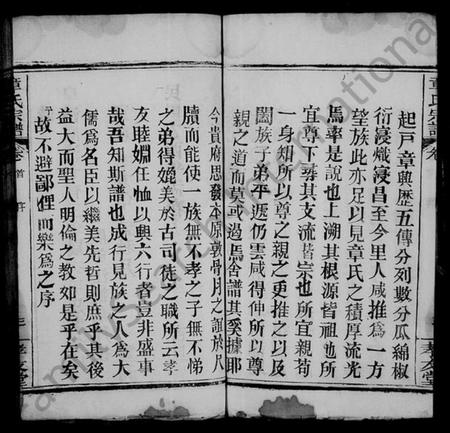 起戸章興歷五傳分列數分瓜綿椒
衍寖熾寖昌至今里人咸推為一方
望族此亦足以見章氏之積厚流光
馬率是說也上溯其根源皆祖也所
宜尊下尋其支流皆宗也所宜親苟
一身知所以尊之親之更推之以及
闔族子弟平遐仍雲咸得伸所以尊
親之道而莫或過焉舍譜其奚據耶
今貴府思發本原敦骨月之誼於尺
牘而能使一族無不孝之子無不悌
之弟得媲美於古司徒之職所云孝
友睦婣任恤以興六行者豈非盛事
哉吾知斯譜也成行見族之人為大
儒為名臣以繼美先哲則庶乎其後
益大而聖人明倫之教䢴是乎在矣
故不避鄙俚而樂為之序
章氏宗譜
卷首
序
三
孝友堂
章氏宗譜
卷
孝友堂